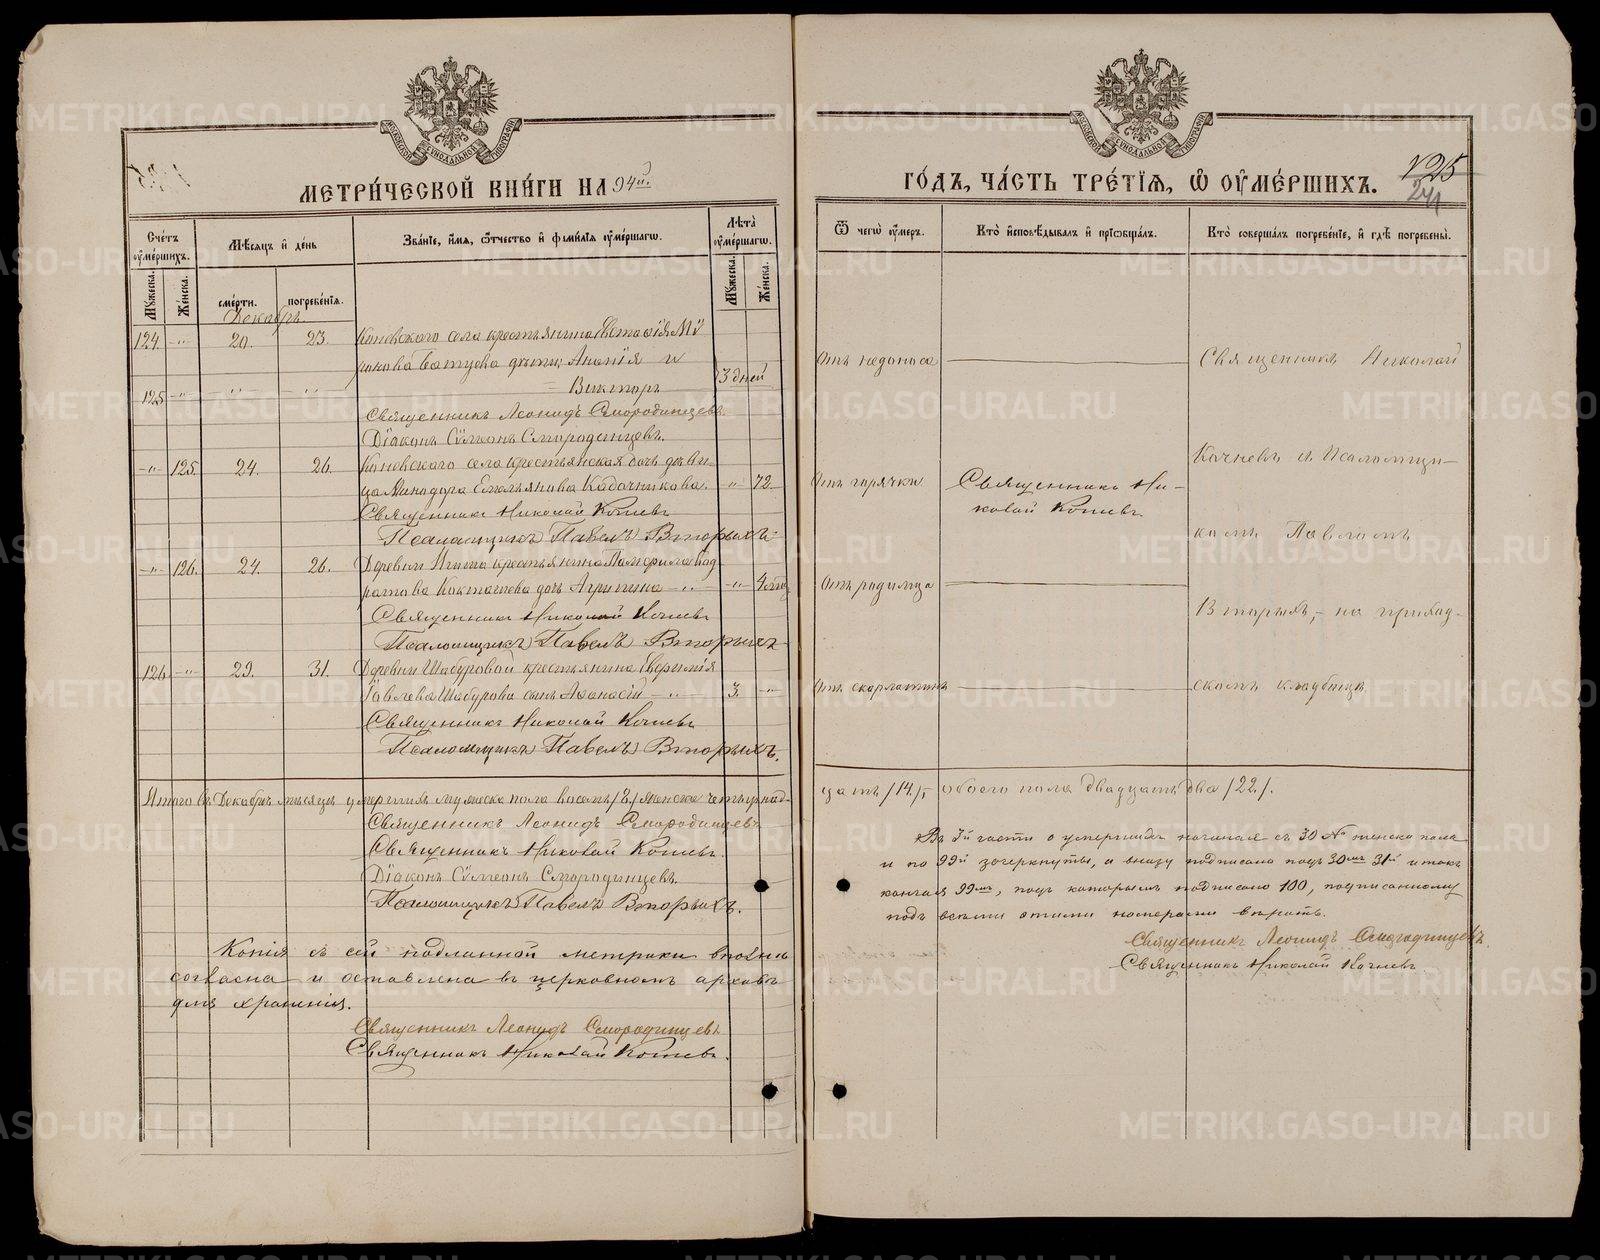 МЕТРИ́ЧЕСКОЙ КНИ́ГИ НА 94й
Сче́тъ ᲂу҆ме́ршихъ.
Мꙋ́жеска.
Же́нска.
Мѣ́сяцъ и҆ де́нь
сме́рти.
погребе́нїя.
Зва́нїе, и҆́мя, ѻ҆́тчество и҆ фами́лїя ᲂу҆ме́ршагѡ.
Лѣ́та ᲂу҆ме́ршагѡ.
Мꙋ́жеска.
Же́нска.
Декабрь
124. -"- 20. 23. Коневского села крестьянина Евстафія Ми
ронова дѣти: Ананія и
125 -"- " " " = Викторъ 3 дней
Священникъ Леонидъ Смородинцевъ
Діаконъ Сѵмеонъ Смородинцевъ.
-"- 125. 24. 26. Коневского села крестьянская дочь дѣви-
ца Минодора Емельянова Кадочникова. -"- 72.
Священникъ Николай Кочневъ
Псаломщикъ Павелъ Вторыхъ.
-"- 126. 24. 26. Деревни крестьянина Памфила
дочь Агрипина -"- -"- 4
Священникъ Николай Кочневъ
Псаломщикъ Павелъ Вторыхъ
126 -"- 29. 31. Деревни Шабуровой крестьянина Евфимія
Іовлева Шабурова сынъ Аѳанасій -"- 3. -"-
Священникъ Николай Кочневъ
Псаломщикъ Павелъ Вторыхъ.
Итого въ Декабрѣ мѣсяцѣ умершихъ мужеска пола восемь /8/ женска четырнад-
Священникъ Леонидъ Смородинцевъ
Священникъ Николай Кочневъ.
Діаконъ Сѵмеонъ Смородинцевъ.
Псаломщикъ Павелъ Вторыхъ.
Копія съ сей подлинной метрики вполнѣ
согласна и оставлена въ церковномъ архивѣ
для храненія.
Священникъ Леонидъ Смородинцевъ
Священникъ Николай Кочневъ.
ГО́ДЪ, ЧА́СТЬ ТРЕ́ТЇЯ, Ѡ҆ ОУ҆МЕ́РШИХЪ.
125
241
Ѿ чегѡ̀ ᲂу҆́меръ.
Кто̀ и҆сповѣ́дывалъ и҆ прїѡбща́лъ.
Кто̀ соверша́лъ погребе́нїе, и҆ гдѣ̀ погребены̀.
Отъ недоноса
Священникъ Николай
Кочневъ и Псаломщи-
Отъ горячки
Священникъ Ни-
колай Кочневъ
комъ Павломъ
Отъ родимца
Вторыхъ, - на приход-
Отъ скарлатины
скомъ кладбищѣ.
цать /14/, обоего пола двадцать два /22/.
Въ 3й части о умершихъ начиная съ 30 № женска пола
и по 99й зачеркнуты, а внизу подписано подъ 30мъ 31й и такъ
кончая 99мъ, подъ которымъ подписано 100, подписанному
подъ всѣми этими номерами вѣрить.
Священникъ Леонидъ Смородинцевъ.
Священникъ Николай Кочневъ.
METRIKI.GASO-URAL.RU